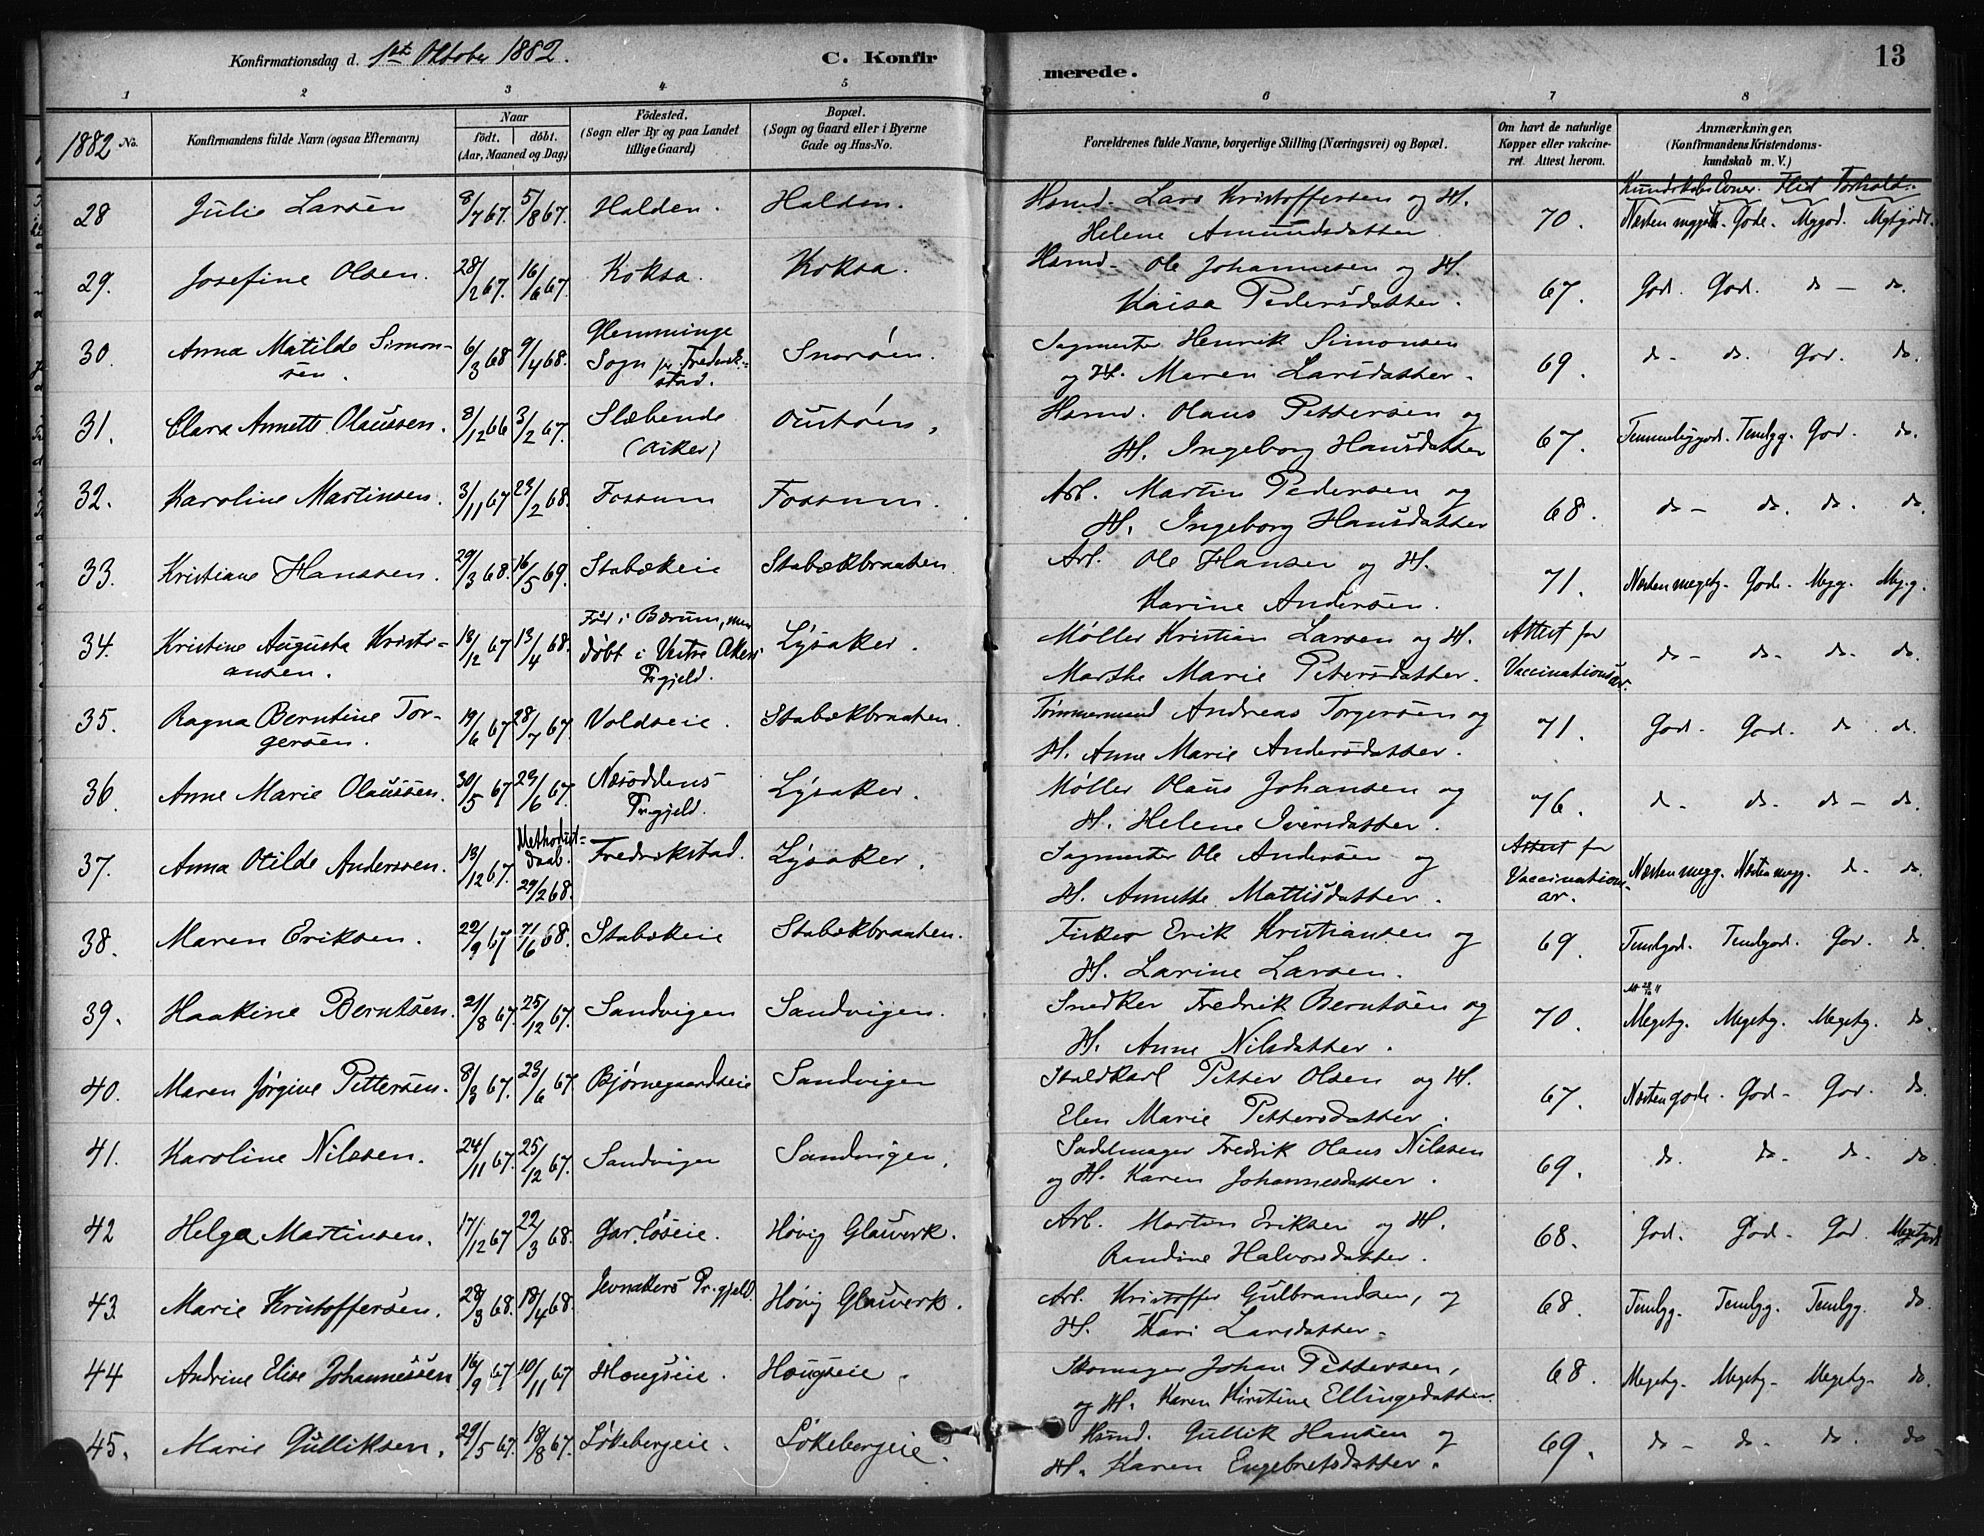 Konfirmationsdag d. 1ste Oktober 1882. C. Konfirmerede. 13
1 2 3 4 5 6 7 8
1882 No.
Konfirmandens fulde Navn (ogsaa Efternavn)
Naar
født. døbt.
(Aar, Maaned og Dag)
Fødested.
(Sogn eller By og paa Landet
tillige Gaard)
Bopæl.
(Sogn og Gaard eller i Byerne
Gade og Hus-No.
Forældrenes fulde Navne, borgerlige Stilling (Næringsvei) og Bopæl.
Om havt de naturlige
Kopper eller vakcine-
ret. Attest herom.
Anmærkninger.
(Konfirmandens Kristendoms-
kundskab m. V.)
Kundskab. Evner. Flid Forhold.
28 Julie Larsen 8/7 67. 5/8 67. Halden. Halden. Hsmd. Lars Kristoffersen og H. 70. Næsten megetg. Gode. Mggod. Mgtgodt.
Helene Amundsdatter
29. Josefine Olsen. 28/2 67. 16/6 67. Koksa. Koksa. Hsmd. Ole Johannesen og H. 67. God. God. do - do.
Kaisa Pedersdatter.
30. Anna Matilde Simon-
sen. 6/3 68 9/4 68. Glemminge
Sogn pr Fredrik-
stad. Snarøen. Sagmester Henrik Simonsen 69. do - do. God. do.
og H. Maren Larsdatter.
31. Clara Annette Olaussen. 8/12 66 3/2 67. Slæbende
(Asker) Oustøen. Hsmd. Olaus Pettersen og 67. Temmeliggod. Temlgg. God. do.
H. Ingeborg Hansdatter
32. Karoline Martinsen. 3/11 67 23/2 68. Fossum Fossum. Arb. Martin Pedersen og 68. do - do. do. do
H. Ingeborg Hansdatter
33. Kristiane Hanssen. 29/3 68. 16/5 69. Stabækeie Stabækbraaten. Arb. Ole Hansen og H. 71. Næsten megetg. Gode. Mgg. Mg.g.
Karine Andersen.
34. Kristine Augusta Kristi-
ansen. 18/12 67 13/4 68. Fød i Bærum, men
døbt i Vestre Akers
Prgjeld. Lysaker. Møller Kristian Larsen og H. Attest for
Vaccinationsar. do - do - do. do.
Marthe Marie Petersdatter.
35. Ragna Berntine Tor-
gersen. 19/6 67 28/7 67. Voldseie. Stabækbraaten. Tømmermand Andreas Torgersen og 71. God. God. do do.
H. Anne Marie Andersdatter.
36. Anne Marie Olaussen. 30/5 67 29/6 67. Næsoddens
Prgjeld. Lysaker. Møller Olaus Johansen og 76. do - do - do - do.
H. Helene Iversdatter.
37. Anna Otilde Anderssen. 13/12 67. Methodist-
daab.
29/2 68. Fredrikstad. Lysaker. Sagmester Ole Andersen og Attest for
Vaccinations-
ar. Næsten megg. Næsten megg. do - do
H. Annette Mattisdatter.
38. Maren Eriksen. 22/9 67 7/6 68. Stabækeie Stabækbraaten. Fisker Erik Kristiansen og 69. Temlgod. Temlgod. God. do.
H. Larine Larsen.
39. Haakine Berntsen. 21/8 67. 25/12 67. Sandvigen Sandvigen. Snedker Fredrik Berntsen og 70. Megetg. Megetg. Megetg. do
H. Anne Nilsdatter.
40. Maren Jørgine Pettersen. 8/3 67. 23/6 67. Bjørnegaardseie Sandvigen Staldkarl Petter Olsen og H. 67. Næsten gode. God - God. do.
Elen Marie Pettersdatter.
41. Karoline Nilssen. 24/11 67. 25/12 67. Sandvigen Sandvigen. Sadelmager Fredrik Olaus Nilssen 69. do. do - do - do.
og H. Karen Johannesdatter.
42 Helga Martinsen. 17/12 67 22/3 68. Garløseie. Høvig Glasverk. Arb. Morten Eriksen og H. 68. God. God. God. Megetgodt
Randine Halvorsdatter.
43. Marie Kristoffersen. 28/3 68. 18/4 68. Jevnakers Prgjeld. Høvig Glasverk. Arb. Kristoffer Gulbrandsen, og 68. Temlgg. Temlgg. Temlgg. do.
H. Kari Larsdatter.
44 Andrine Elise Johannessen 16/9 67 10/11 67 Hougseie. Hougseie. Skomager Johan Pettersen, 68. Megetg. Megetg. Megetg. do
og H. Karen Kirstine Ellingsdatter.
45. Marie Gulliksen. 29/5 67. 18/8 67. Løkebergeie. Løkebergeie. Hsmd. Gullik Hansen og 69. do - do. do. do
H. Karen Engebretsdatter.